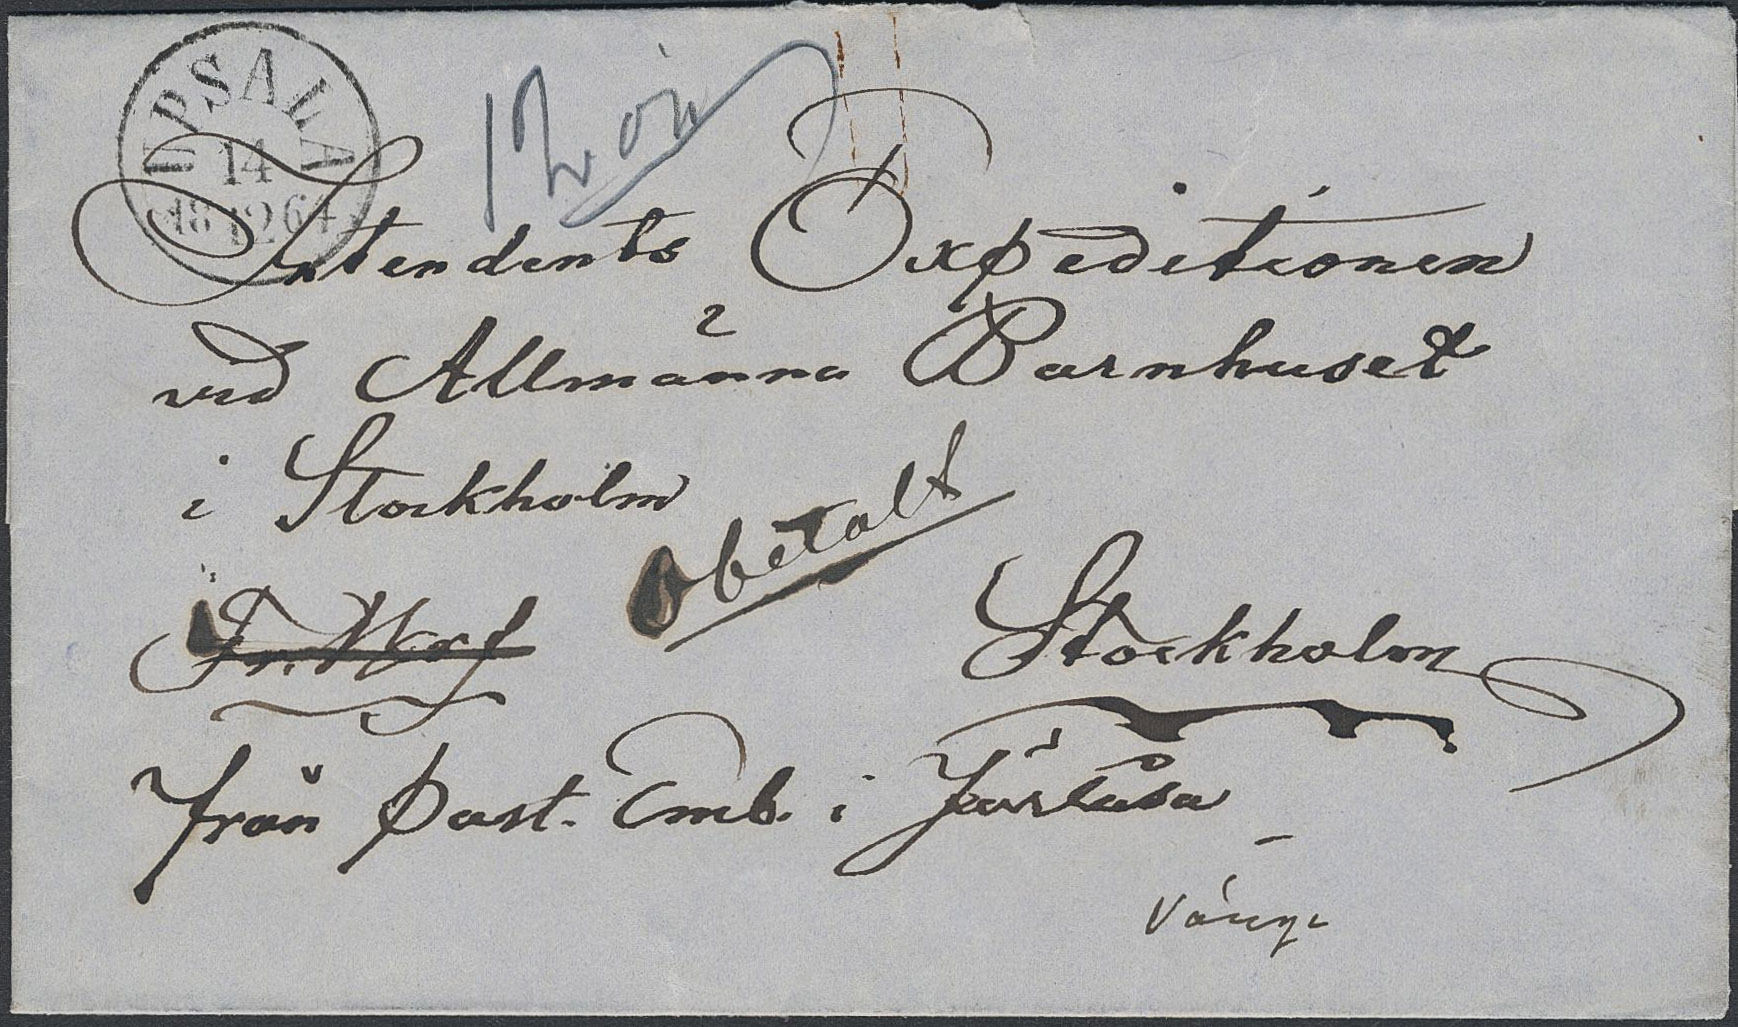 UPSALA
14
18 12 64
12 öre
Intendents Expeditionen
vid Allmänna Barnhuset
i Stockholm
obetalt
Fr. Werf
Stockholm
från Past. Emb. i Järlåsa
Vänge